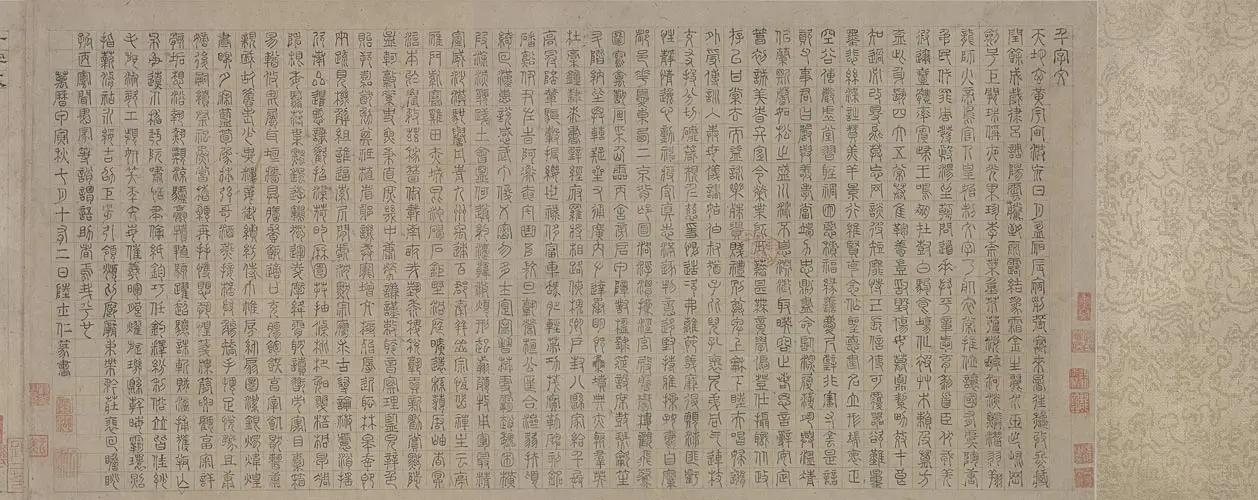 千字文
天地玄黃宇宙洪荒日月盈昃辰宿列張寒來暑往秋收冬藏
閏餘成歲律呂調陽雲騰致雨露結爲霜金生麗水玉出崑岡
劍號巨闕珠稱夜光果珍李柰菜重芥薑海鹹河淡鱗潛羽翔
龍師火帝鳥官人皇始制文字乃服衣裳推位讓國有虞陶唐
弔民伐罪周發殷湯坐朝問道垂拱平章愛育黎首臣伏戎羌
遐邇壹體率賓歸王鳴鳳在樹白駒食場化被草木賴及萬方
蓋此身髮四大五常恭惟鞠養豈敢毀傷女慕貞絜男效才良
知過必改得能莫忘罔談彼短靡恃己長信使可覆器欲難量
墨悲絲染詩讚羔羊景行維賢克念作聖德建名立形端表正
空谷傳聲虛堂習聽禍因惡積福緣善慶尺璧非寶寸陰是競
資父事君曰嚴與敬孝當竭力忠則盡命臨深履薄夙興溫凊
似蘭斯馨如松之盛川流不息淵澄取映容止若思言辭安定
篤初誠美慎終宜令榮業所基籍甚無竟學優登仕攝職從政
存以甘棠去而益詠樂殊貴賤禮別尊卑上和下睦夫唱婦隨
外受傅訓入奉母儀諸姑伯叔猶子比兒孔懷兄弟同氣連枝
交友投分切磨箴規仁慈隱惻造次弗離節義廉退顛沛匪虧
性靜情逸心動神疲守真志滿逐物意移堅持雅操好爵自縻
都邑華夏東西二京背邙面洛浮渭據涇宮殿盤鬱樓觀飛驚
圖寫禽獸畫彩仙靈丙舍傍啓甲帳對楹肆筵設席鼓瑟吹笙
升階納陛弁轉疑星右通廣內左達承明既集墳典亦聚群英
杜稾鍾隸漆書壁經府羅將相路俠槐卿戶封八縣家給千兵
高冠陪輦驅轂振纓世祿侈富車駕肥輕策功茂實勒碑刻銘
磻溪伊尹佐時阿衡奄宅曲阜微旦孰營桓公匡合濟弱扶傾
綺迴漢惠說感武丁俊乂密勿多士寔寧晉楚更霸趙魏困橫
假途滅虢踐土會盟何遵約法韓弊煩刑起翦頗牧用軍最精
宣威沙漠馳譽丹青九州禹跡百郡秦并嶽宗恆岱禪主云亭
雁門紫塞雞田赤城昆池碣石鉅野洞庭曠遠緜邈巖岫杳冥
治本於農務茲稼穡俶載南畝我藝黍稷稅熟貢新勸賞黜陟
孟軻敦素史魚秉直庶幾中庸勞謙謹敕聆音察理鑑貌辨色
貽厥嘉猷勉其祗植省躬譏誡寵增抗極殆辱近恥林皋幸即
兩疏見機解組誰逼索居閑處沉默寂寥求古尋論散慮逍遙
欣奏累遣慼謝歡招渠荷的歷園莽抽條枇杷晚翠梧桐早凋
陳根委翳落葉飄颻遊鵾獨運凌摩絳霄耽讀翫市寓目囊箱
易輶攸畏屬耳垣牆具膳餐飯適口充腸飽飫烹宰飢厭糟糠
親戚故舊老少異糧妾御績紡侍巾帷房紈扇圓潔銀燭煒煌
晝眠夕寐藍筍象牀弦歌酒讌接杯舉觴矯手頓足悅豫且康
嫡後嗣續祭祀烝嘗稽顙再拜悚懼恐惶箋牒簡要顧答審詳
骸垢想浴執熱願涼驢騾犢特駭躍超驤誅斬賊盜捕獲叛亡
布射遼丸嵇琴阮嘯恬筆倫紙鈞巧任釣釋紛利俗並皆佳妙
毛施淑姿工顰妍笑年矢每催曦暉朗曜璇璣懸斡晦魄環照
指薪修祜永綏吉劭矩步引領俯仰廊廟束帶矜莊徘徊瞻眺
孤陋寡聞愚蒙等誚謂語助者焉哉乎也
萬曆甲寅秋七月十有二日陸士仁篆書